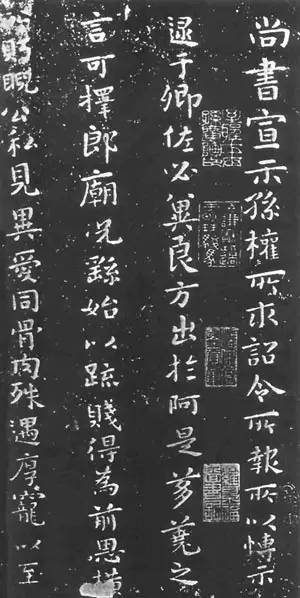 尚書宣示孫權所求詔令所報所以博示
逮于卿佐必冀良方出於阿是芻蕘之
言可擇郎廟況繇始以疏賤得為前恩橫
所眂睨公私見異愛同骨肉殊遇厚寵以至